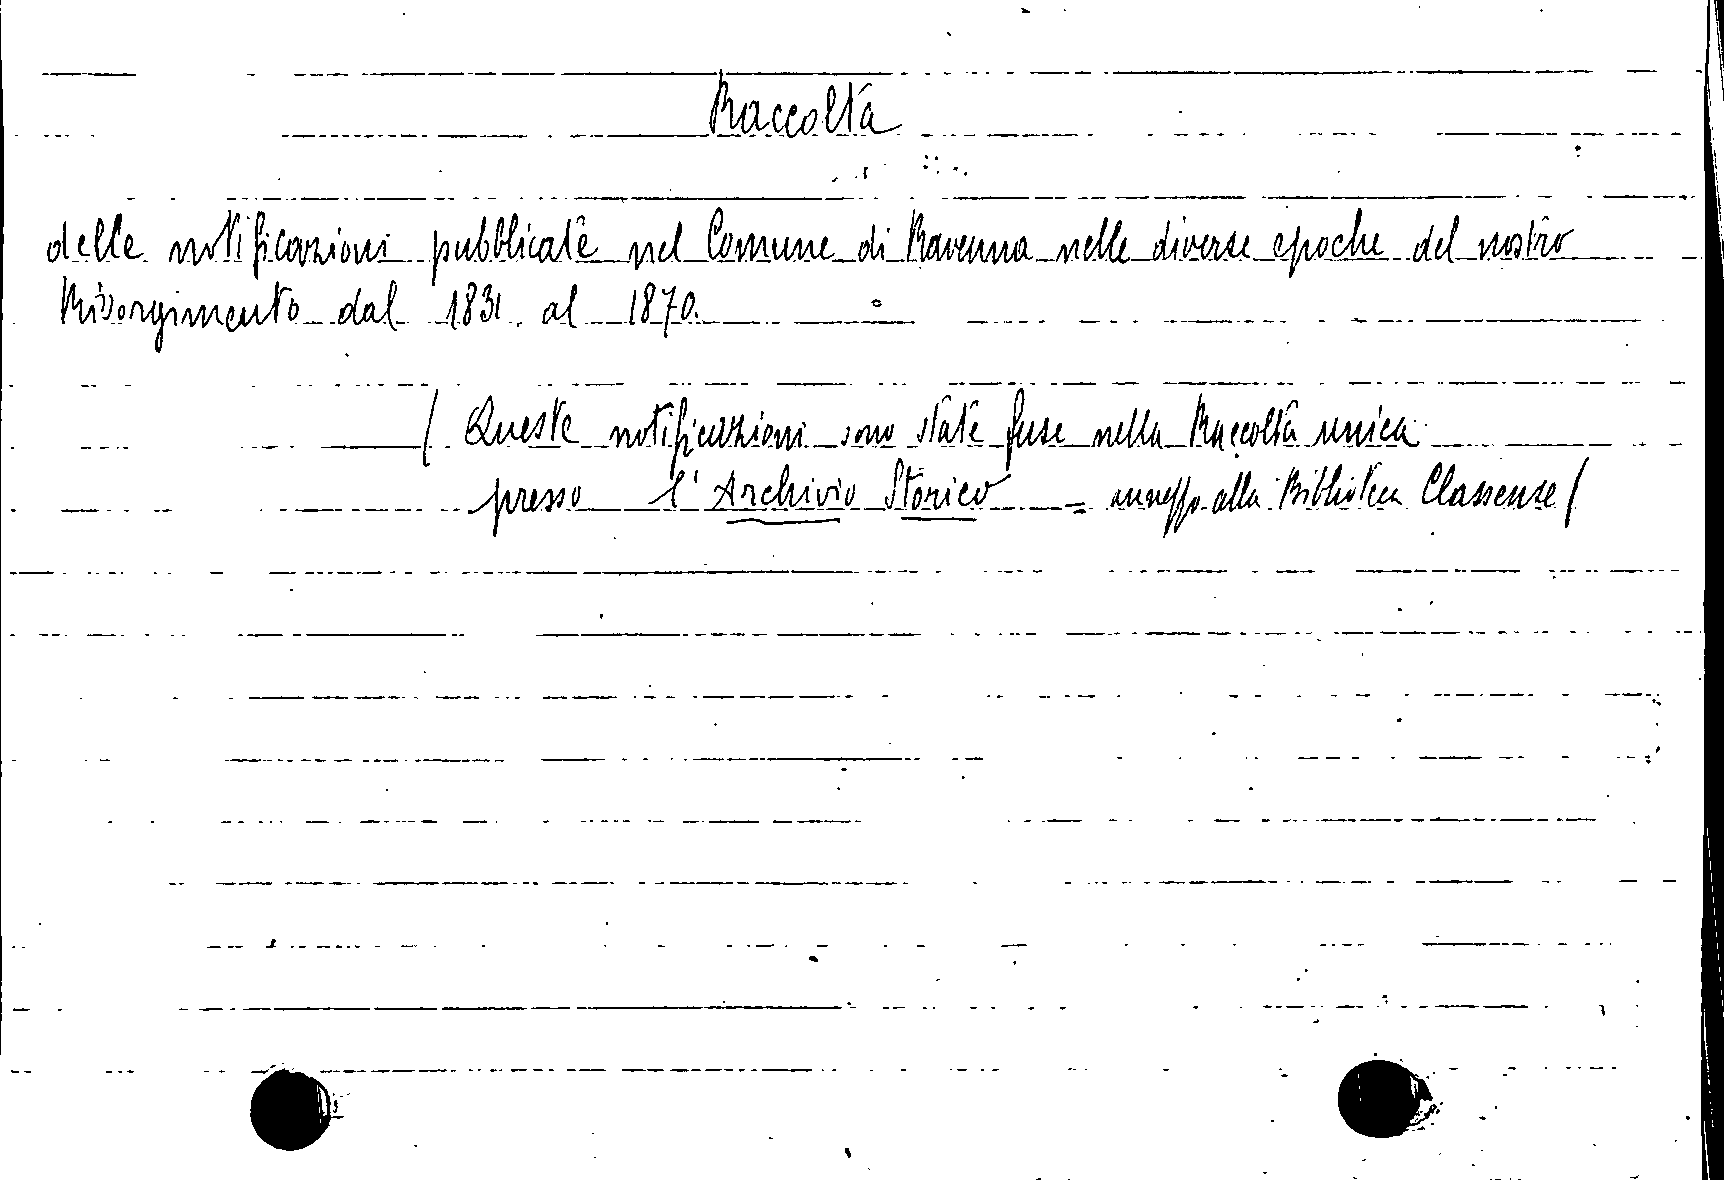 Raccolta
delle notificazioni pubblicate nel Comune di Ravenna nelle diverse epoche del nostro
Risorgimento dal 1831 al 1870.
/ Queste notificazioni sono state fuse nella Raccolta unica
presso l'Archivio Storico = annesso alla Biblioteca Classense /